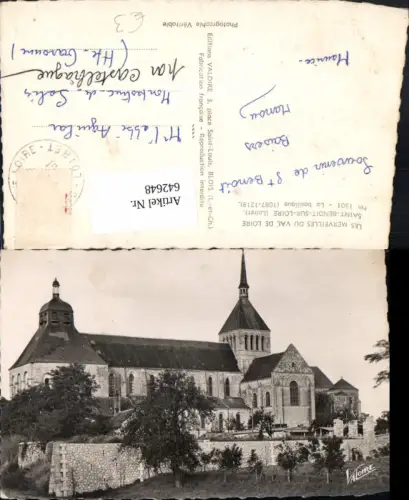 LES MERVEILLES DU VAL DE LOIRE
SAINT-BENOIT-SUR-LOIRE (Loiret).
No 1301 - La basilique (1067-1218).
Souvenir de St Benoit
Baisers
Manou
Maurice
Editions VALOIRE 3, place Saint-Louis, BLOIS (L.-et-Ch.)
Fabrication française - Reproduction interdite
Photographie Véritable
Mr l'abbé Aguilar
Montastruc-de-Salies
par Castelbiague
(Hte Garonne)
63
LOIRE
Artikel Nr.
642648
Valoire